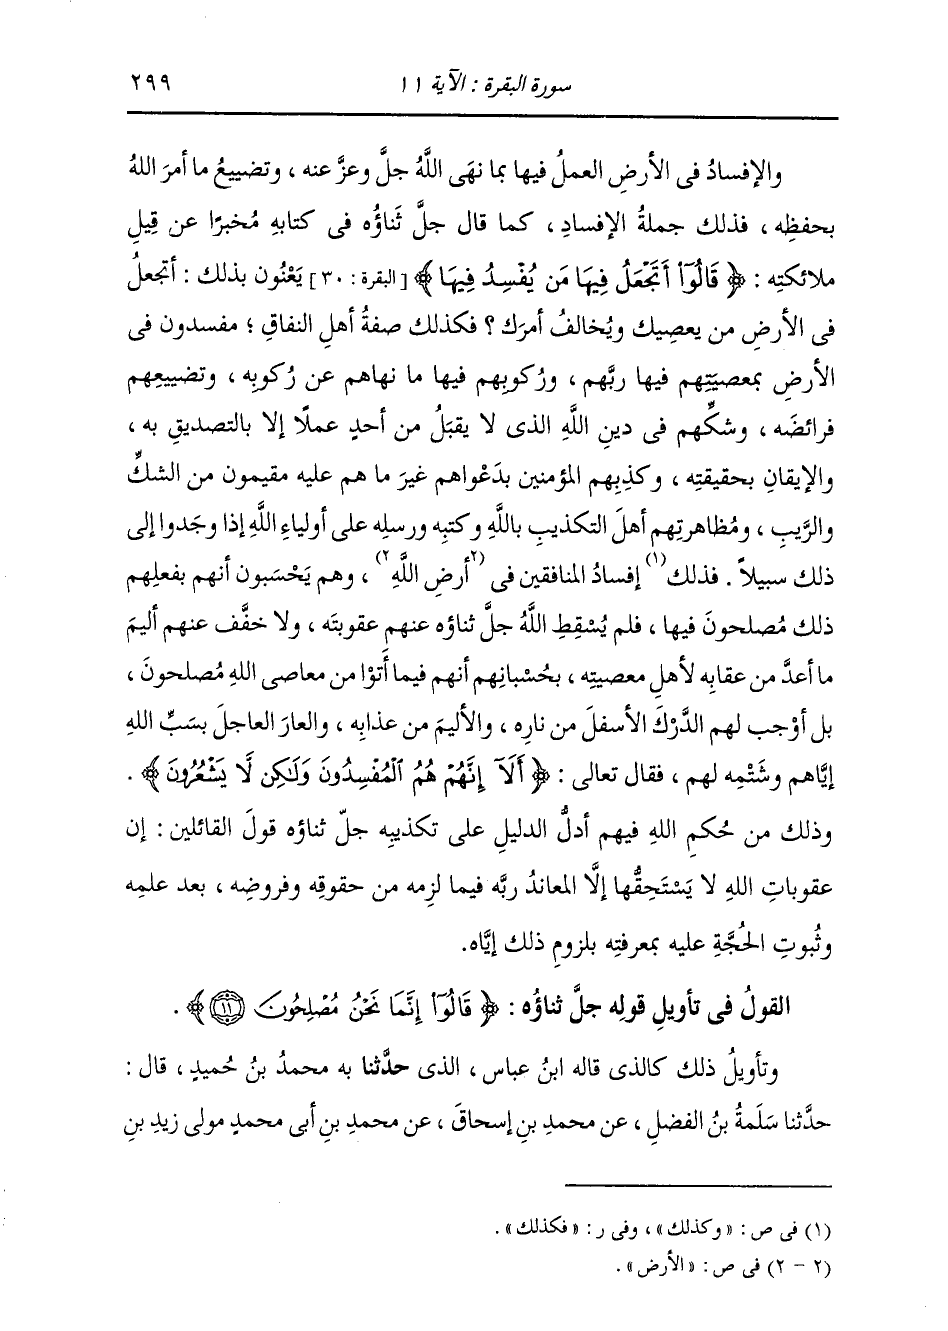 سورة البقرة : الآية ١١
٢٩٩
والإفسادُ فى الأرضِ العملُ فيها بما نهَى اللَّهُ جلَّ وعزَّ عنه ، وتضييعُ ما أمرَ اللهُ
بحفظِه ، فذلك جملةُ الإفسادِ ، كما قال جلَّ ثَناؤُه فى كتابهِ مُخبرًا عن قِيلِ
ملائكتِه : ﴿ قَالُوٓا۟ أَتَجْعَلُ فِيهَا مَن يُفْسِدُ فِيهَا ﴾ [البقرة : ٣٠] يَعْنُون بذلك : أتجعلُ
فى الأرضِ من يعصِيك ويُخالفُ أمرَك ؟ فكذلك صفةُ أهلِ النفاقِ ؛ مفسدون فى
الأرضِ بمعصيَتِهم فيها ربَّهم ، ورُكوبِهم فيها ما نهاهم عن رُكوبِه ، وتضييعِهم
فرائضَه ، وشكِّهم فى دينِ اللَّهِ الذى لا يقبَلُ من أحدٍ عملًا إلا بالتصديقِ به ،
والإيقانِ بحقيقتِه ، وكذِبِهم المؤمنين بدَعْواهم غيرَ ما هم عليه مقيمون من الشكِّ
والرَّيبِ ، ومُظاهرتِهم أهلَ التكذيبِ باللَّهِ وكتبِه ورسلِه على أولياءِ اللَّهِ إذا وجَدوا إلى
ذلك سبيلاً . فذلك(١) إفسادُ المنافقين فى (٢أرضِ اللَّهِ٢) ، وهم يَحْسَبون أنهم بفعلِهم
ذلك مُصلحونَ فيها ، فلم يُسْقِطِ اللَّهُ جلَّ ثناؤه عنهم عقوبتَه ، ولا خفَّف عنهم أليمَ
ما أعدَّ من عقابِه لأهلِ معصيتِه ، بحُسْبانِهم أنهم فيما أَتَوْا من معاصى اللهِ مُصلحونَ ،
بل أوْجب لهم الدَّرْكَ الأسفلَ من نارِه ، والأليمَ من عذابِه ، والعارَ العاجلَ بسَبِّ اللهِ
إيَّاهم وشَتْمِه لهم ، فقال تعالى : ﴿ أَلَآ إِنَّهُمْ هُمُ ٱلْمُفْسِدُونَ وَلَٰكِن لَّا يَشْعُرُونَ ﴾ .
وذلك من حُكمِ اللهِ فيهم أدلُّ الدليلِ على تكذيبِه جلّ ثناؤه قولَ القائلين : إن
عقوباتِ اللهِ لا يَسْتَحِقُّها إلَّا المعاندُ ربَّه فيما لزِمه من حقوقِه وفروضِه ، بعد علمِه
وثُبوتِ الحُجَّةِ عليه بمعرفتِه بلزومِ ذلك إيَّاه.
القولُ فى تأويلِ قولِه جلَّ ثناؤُه : ﴿ قَالُوٓا۟ إِنَّمَا نَحْنُ مُصْلِحُونَ ١١ ﴾ .
وتأويلُ ذلك كالذى قاله ابنُ عباس ، الذى حدَّثنا به محمدُ بنُ حُميدٍ ، قال :
حدَّثنا سَلَمةُ بنُ الفضلِ ، عن محمدِ بنِ إسحاقَ ، عن محمدِ بنِ أبى محمدٍ مولى زيدِ بنِ
(١) فى ص : «وكذلك» ، وفى ر : «فكذلك» .
(٢ - ٢) فى ص : «الأرض» .